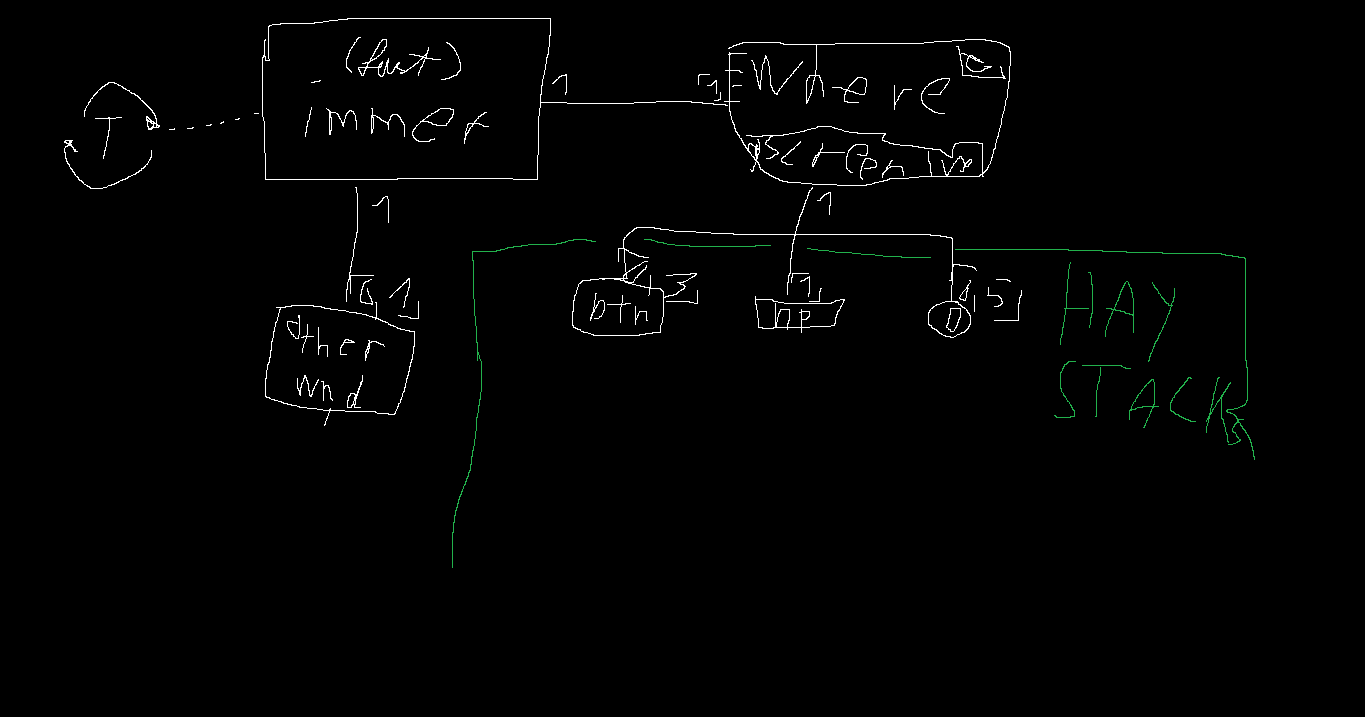 (fast)
immer
T
1
1
Where
screen
1
1
1
other
wnd
btn
3
1
inp
5
HAY
STACK